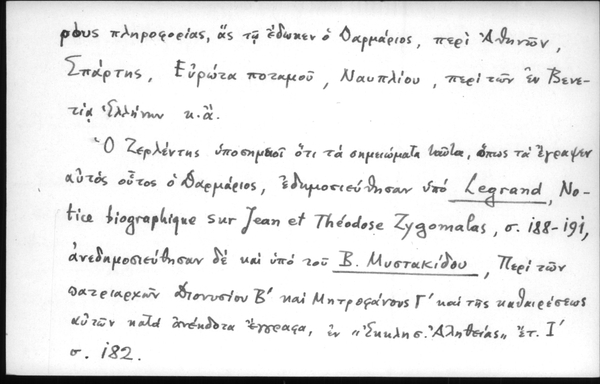 ρους πληροφορίας, ἃς τῷ ἔδωκεν ὁ Δαρμάριος, περὶ Ἀθηνῶν,
Σπάρτης, Εὐρώτα ποταμοῦ, Ναυπλίου, περὶ τῶν ἐν Βενε-
τίᾳ Ἑλλήνων κ.ἄ.
Ὁ Ζερλέντης ὑποσημειοῖ ὅτι τὰ σημειώματα ταῦτα, ὅπως τὰ ἔγραψεν
αὐτὸς οὗτος ὁ Δαρμάριος, ἐδημοσιεύθησαν ὑπὸ Legrand, No-
tice biographique sur Jean et Théodose Zygomalas, σ. 188-191,
ἀνεδημοσιεύθησαν δὲ καὶ ὑπὸ τοῦ Β. Μυστακίδου, Περὶ τῶν
πατριαρχῶν Διονυσίου Β' καὶ Μητροφάνους Γ' καὶ τῆς καθαιρέσεως
αὐτῶν κατὰ ἀνέκδοτα ἔγγραφα, ἐν "Ἐκκλησ. Ἀληθείας" ἔτ. Ι'
σ. 182.